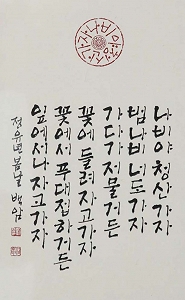 나비야청산가자
나비야 청산가자
범나비 너도가자
가다가 저물거든
꽃에 들려자고가자
꽃에서 푸대접하거든
잎에서나 자고가자
정유년 봄날 백암